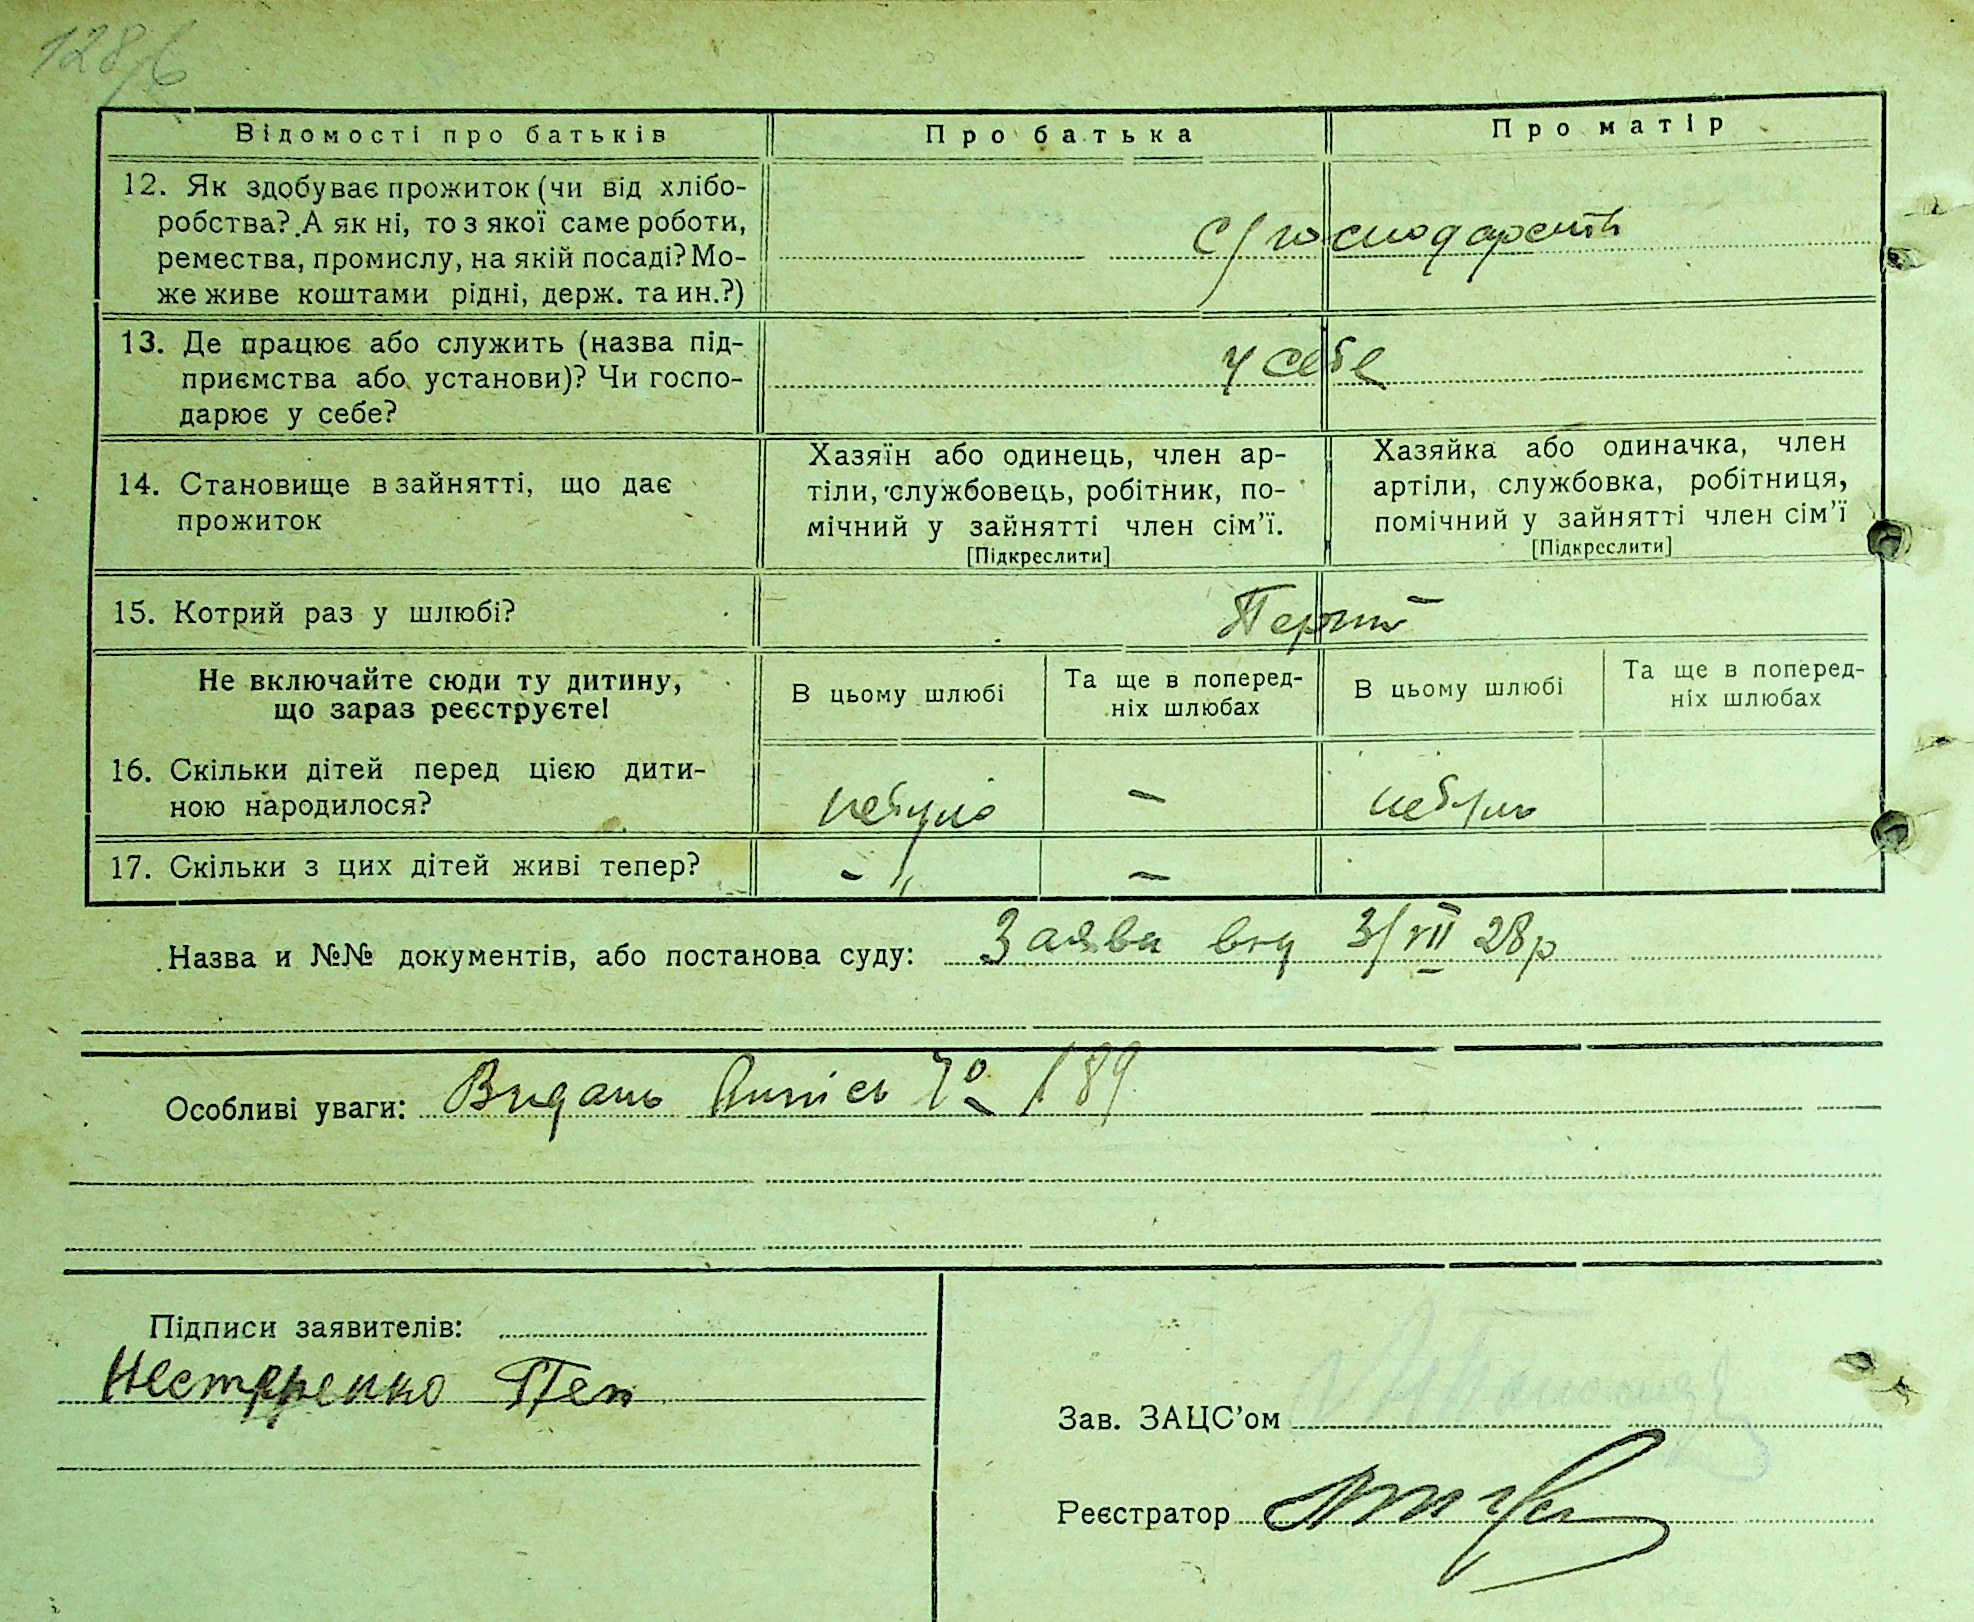 128/6
Відомості про батьків
Про батька
Про матір
12. Як здобуває прожиток (чи від хлібо-
робства? А як ні, то з якої саме роботи,
ремества, промислу, на якій посаді? Мо-
же живе коштами рідні, держ. та ин.?)
С/господарств
13. Де працює або служить (назва під-
приємства або установи)? Чи госпо-
дарює у себе?
у себе
14. Становище в зайнятті, що дає
прожиток
Хазяїн або одинець, член ар-
тіли, службовець, робітник, по-
мічний у зайнятті член сім'ї.
[Підкреслити]
Хазяйка або одиначка, член
артіли, службовка, робітниця,
помічний у зайнятті член сім'ї
[Підкреслити]
15. Котрий раз у шлюбі?
Перший
Не включайте сюди ту дитину,
що зараз реєструєте!
В цьому шлюбі
Та ще в поперед-
ніх шлюбах
В цьому шлюбі
Та ще в поперед-
ніх шлюбах
16. Скільки дітей перед цією дити-
ною народилося?
небуло
—
небуло
17. Скільки з цих дітей живі тепер?
- "
—
Назва и №№ документів, або постанова суду: Заява від 3/VII 28р
Особливі уваги: Видань Випісь № 189
Підписи заявителів:
Нестеренко Пет
Зав. ЗАЦС'ом
Реєстратор